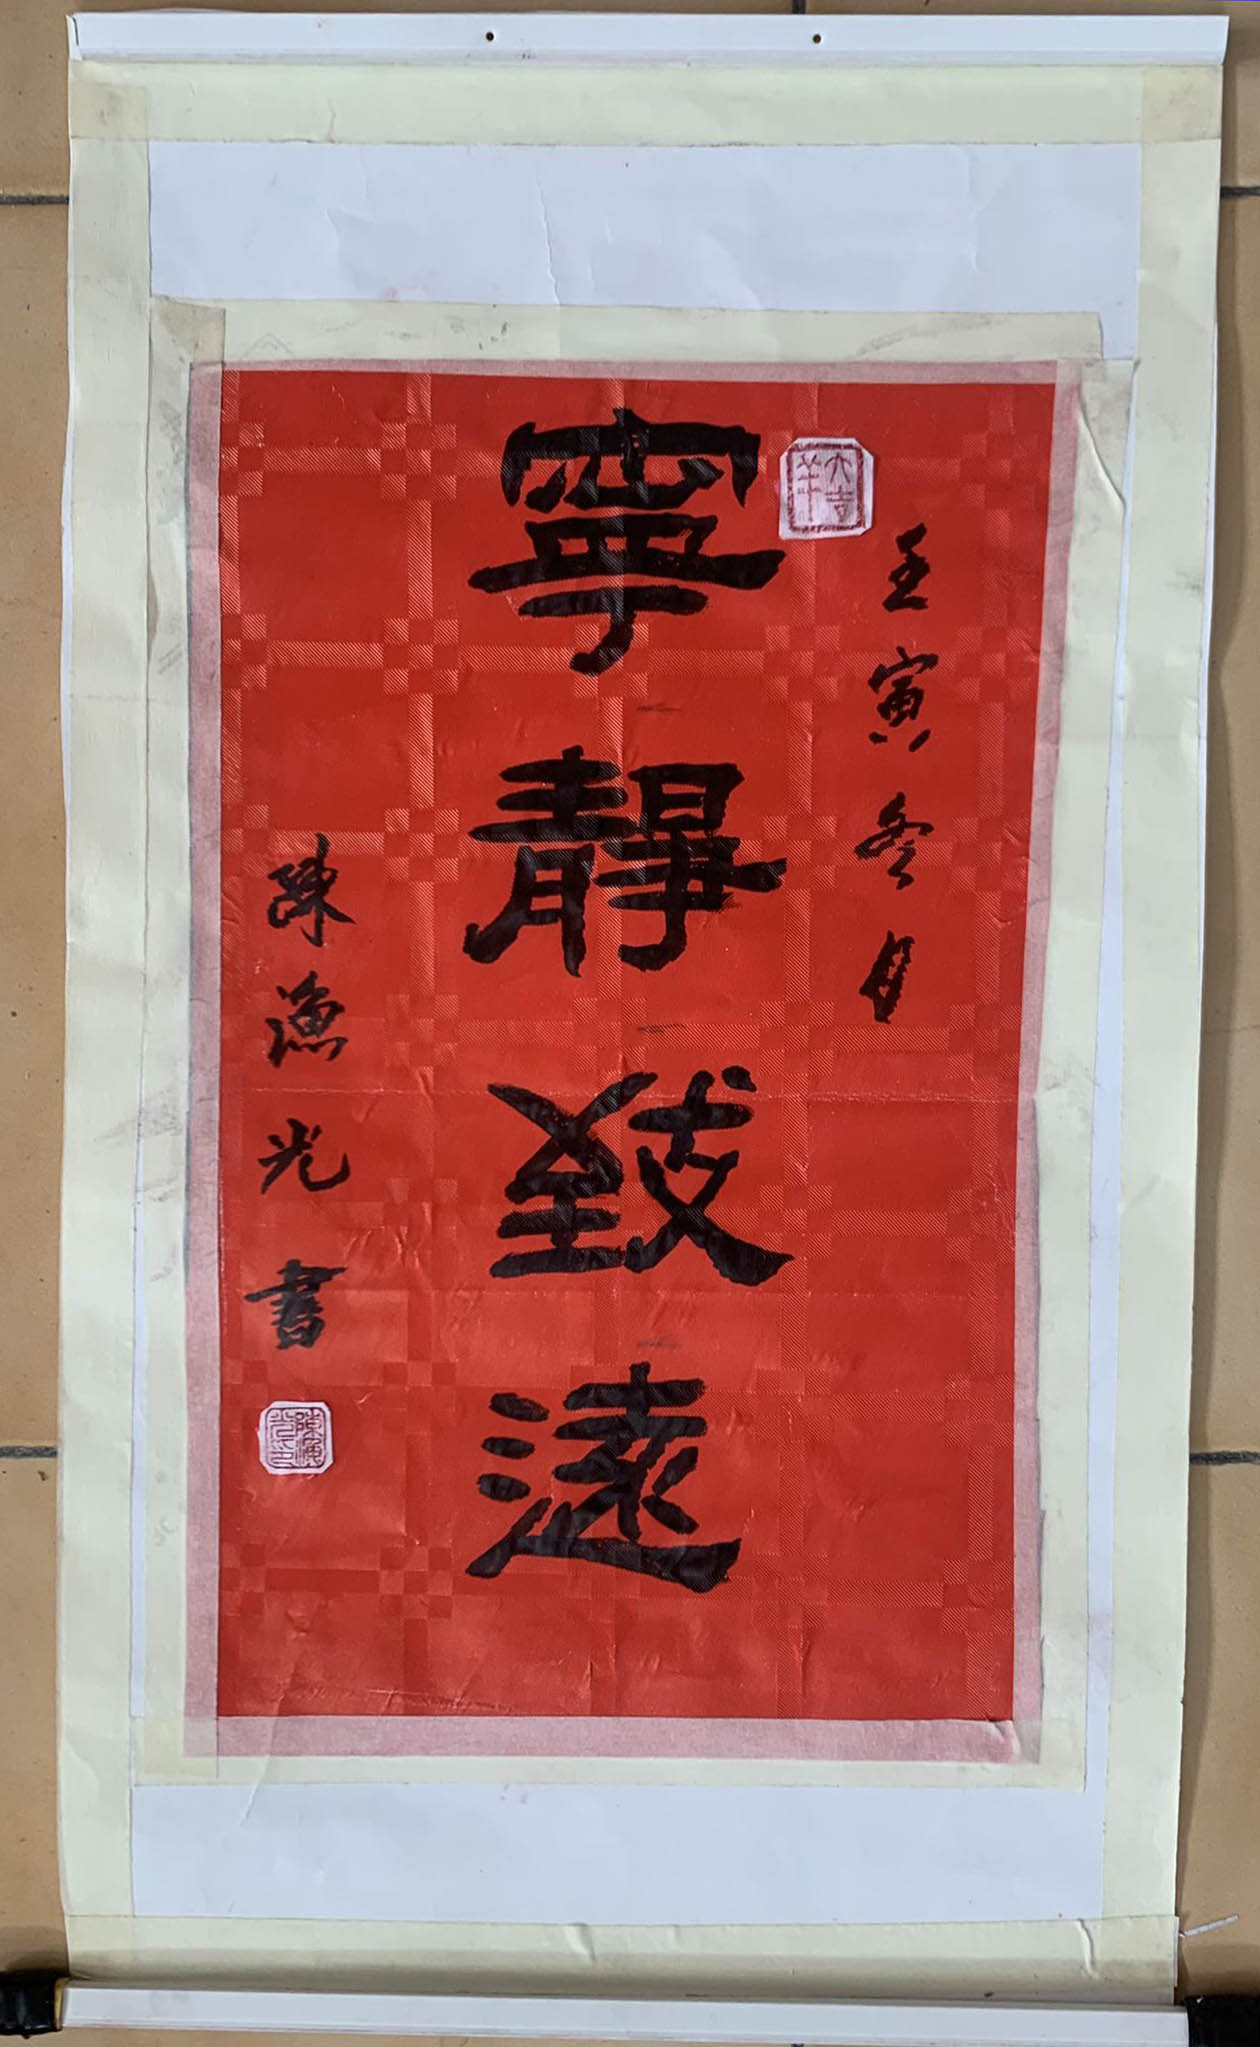 大吉
羊
壬寅冬月
寧靜致遠
陳漁光書